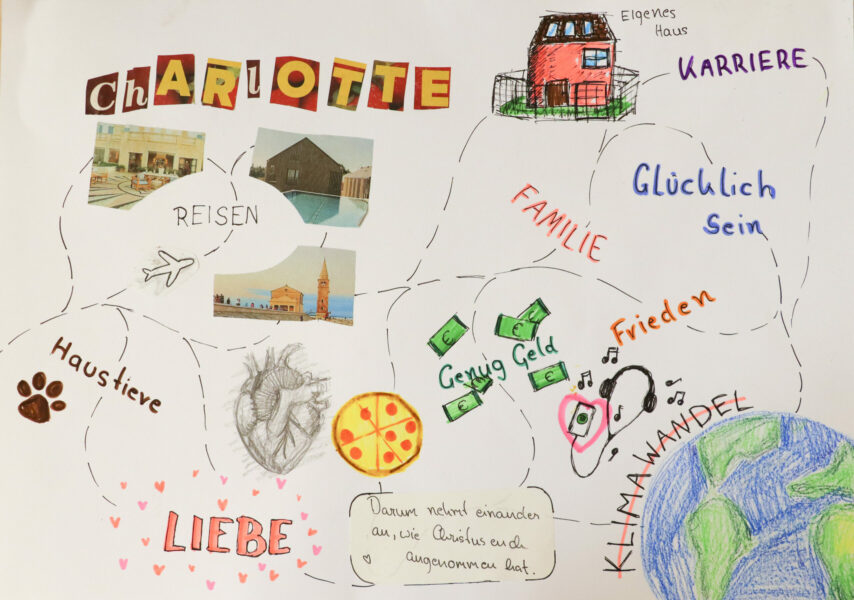 Eigenes
Haus
KARRIERE
ChARlOTTE
Glücklich
Sein
REISEN
FAMILIE
Frieden
Genug Geld
Haustiere
KLIMAWANDEL
LIEBE
Darum nehmt einander
an, wie Christus euch
angenommen hat.